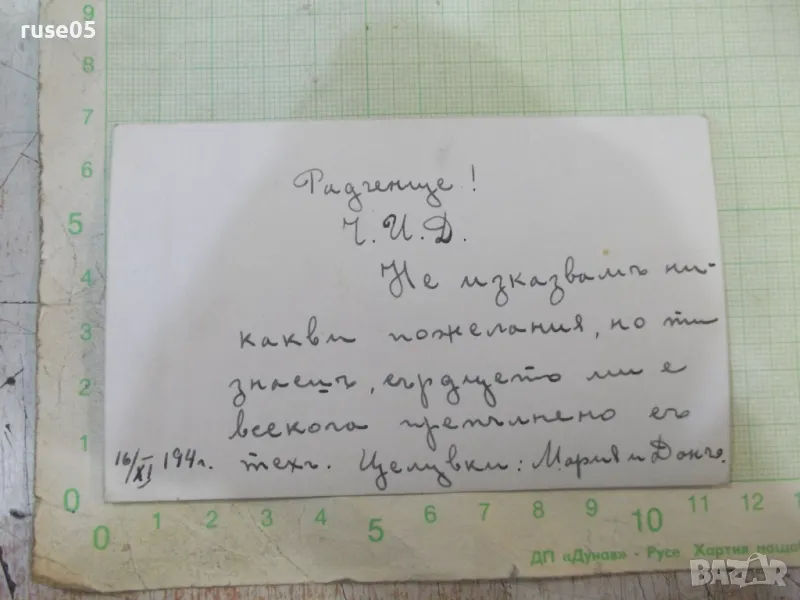 ruse05
Радченце!
Ч.И.Д.
Не изказвамъ ни-
какви пожелания, но ти
знаешъ, сърдцето ми е
всекога препълнено съ
16/XI 194г. техъ. Целувки: Мария и Данчо.
9
8
7
6
5
4
3
2
1
0
0 1 2 3 4 5 6 7 8 9 10 11 12
ДП «Дунав» - Русе Хартия
BAZAR